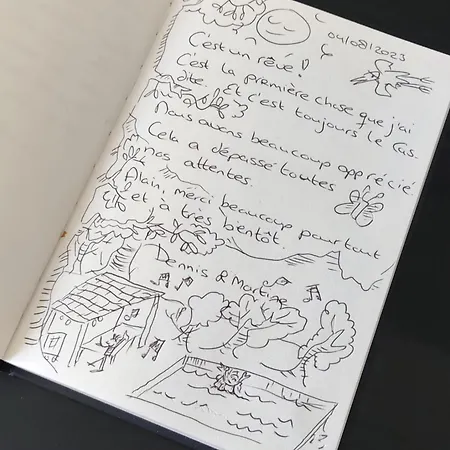 04/08/2023
C'est un rêve!
C'est la première chose que j'ai
dite. Et c'est toujours le cas.
Nous avons beaucoup apprécié.
Cela a dépassé toutes
nos attentes.
Alain, merci beaucoup pour tout
et à très bientôt.
Dennis & Martine